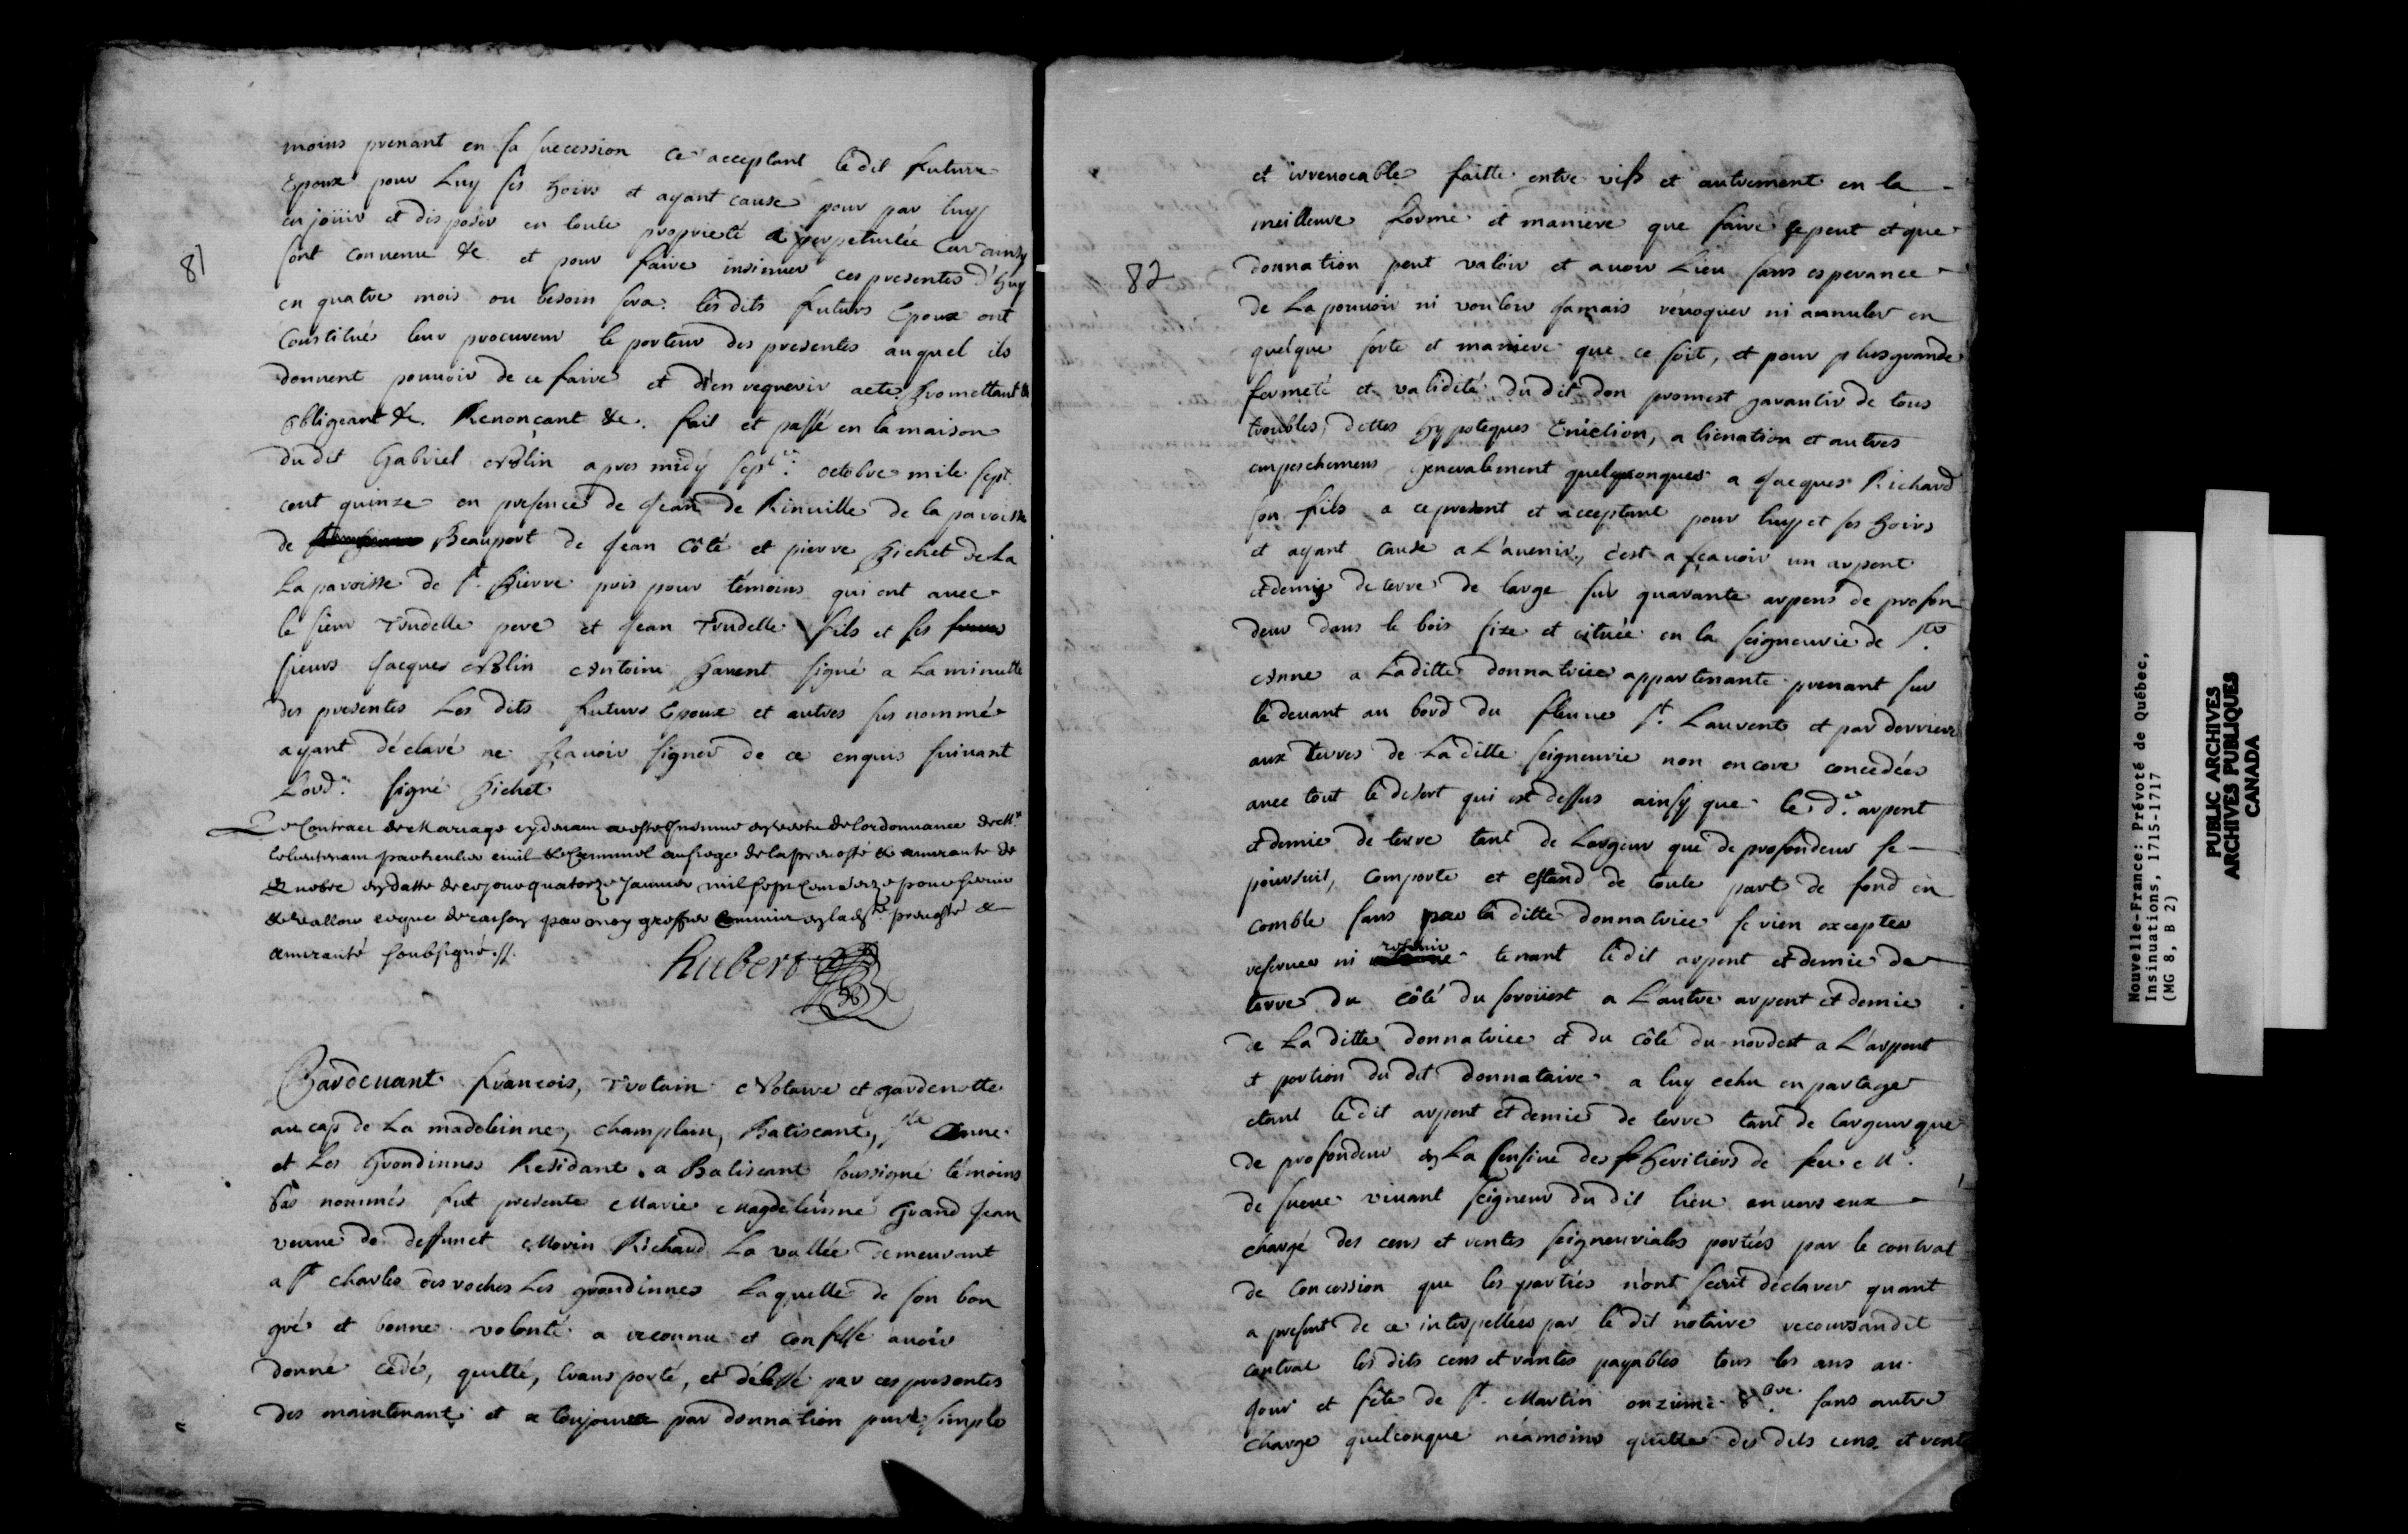 81
moins prenant en sa succession ce acceptant ledit future
Epoux pour Luy ses hoirs et ayant cause pour par luy
en joüir et disposer en toute proprieté a perpetuitée Car ainsy
sont convenu &c et pour faire insinuer ces presentes d'huy
en quatre mois ou besoin sera. lesdits futurs Epoux ont
Constitués leur procureur le porteur des presentes auquel ils
donnent pouuoir de ce faire et d'en requerir acte. promettant &
obligeant &c. Renonçant &c. fait et passé en la maison
dudit Gabriel apres midy octobre mile sept
cent quinze en presence de Jean de Rinuille de la paroisse
de Beauport de Jean Côté et pierre Pichet de La
La paroisse de st. Pierre pris pour témoins qui ont avec
le sieur Trudelle pere et Jean Trudelle fils et ses
sieurs Jacques Antoine Parent signé a La minutte
des presentes Les dits futurs Epoux et autres sus nommé
ayant déclaré ne sçauoir signer de ce enquis suiuant
Lord.e signé Pichet
Le Contract de Mariage cy deuant a esté Insinué en vertu de lordonnance de Mr
le lieutenant particulier ciuil & Criminel au siege de la preuosté & amirauté de
Quebec en datte de ce jour quatorze Januier mil sept cent seize pour seruir
& valloir ce que de raison par moy greffier Commis en lad.te preuosté &
amirauté soubsigné .//.
hubert
Pardeuant francois, Trotain Notaire et gardenotte
au cap de La madeleinne, champlain, Batiscant, ste Anne
et Les grondinnes Residant a Batiscant soussigné témoins
bas nommés fut presente Marie Magdeleinne Grand Jean
veuue de deffunct Morin Richard La vallée demeurant
a st charles des roches Les grondinnes Laquelle de son bon
gré et bonne volonté a reconnu et confessé auoir
donné cédé, quitté, transporté, et délessé par ces presentes
des maintenant et a toujours par donnation pure simple
82
et irreuocable faitte entre vifs et autrement en la
meilleure forme et maniere que faire se peut et que
donnation peut valoir et auoir Lieu sans esperance
de La pouuoir ni vouloir jamais réuoquer ni annuler en
quelque sorte et maniere que ce soit, et pour plus grande
fermeté et validité du dit don promest garantir de tous
troubles, dettes hypoteques Euiction, alienation et autres
empeschemens generalement quelquonques a Jacques Richard
son fils a ce present et acceptant pour luy et ses hoirs
et ayant cause a L'auenir, c'est a sçauoir un arpent
et demy de terre de large sur quarante arpens de profon
deur dans le bois size et cituée en la seigneurie de ste
Anne a Laditte donnatrice appartenante prenant sur
le deuant au bord du fleuue st. Laurent et par derriere
aux terres de Laditte seigneurie non encore concedées
auec tout le desert qui est dessus ainsy que le d. arpent
et demie de terre tant de Largeur que de profondeur se
poursuit, comporte et estend de toute part de fond en
comble sans par la ditte donnatrice se rien excepter
reseruer ni retenir tenant ledit arpent et demie de
terre du côté du soroüest a L'autre arpent et demie
de La ditte donnatrice et du côté du nordest a L'arpent
et portion du dit donnataire a luy echu en partage
etant ledit arpent et demie de terre tant de largeur que
de profondeur en La sensiue des heritiers de feu Mr.
de sueue viuant seigneur du dit lieu enuers eux
chargé des cens et rentes seigneuriales portées par le contrat
de Concession que les parties n'ont sceut déclarer quant
a present de ce interpellées par ledit notaire recours audit
contrat lesdits cens et rantes payables tous les ans au
jour et fête de st. Martin onzieme sans autre
charge quelconque néamoins quitte des dits cens et rent
Nouvelle-France: Prévoté de Québec,
Insinuations, 1715-1717
(MG 8, B 2)
PUBLIC ARCHIVES
ARCHIVES PUBLIQUES
CANADA